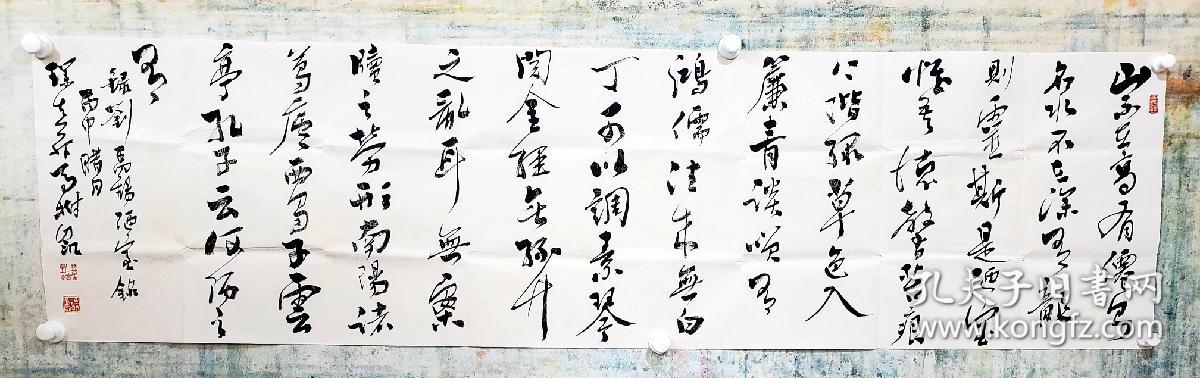 山不在高有僊則
名水不在深有龍
則靈斯是陋室
惟吾德馨苔痕
上階綠草色入
簾青談笑有
鴻儒往來無白
丁可以調素琴
閱金經無絲竹
之亂耳無案
牘之勞形南陽諸
葛廬西蜀子雲
亭孔子云何陋之
有
錄劉禹錫陋室銘
丙申腊月
孔夫子旧書网
www.kongfz.com